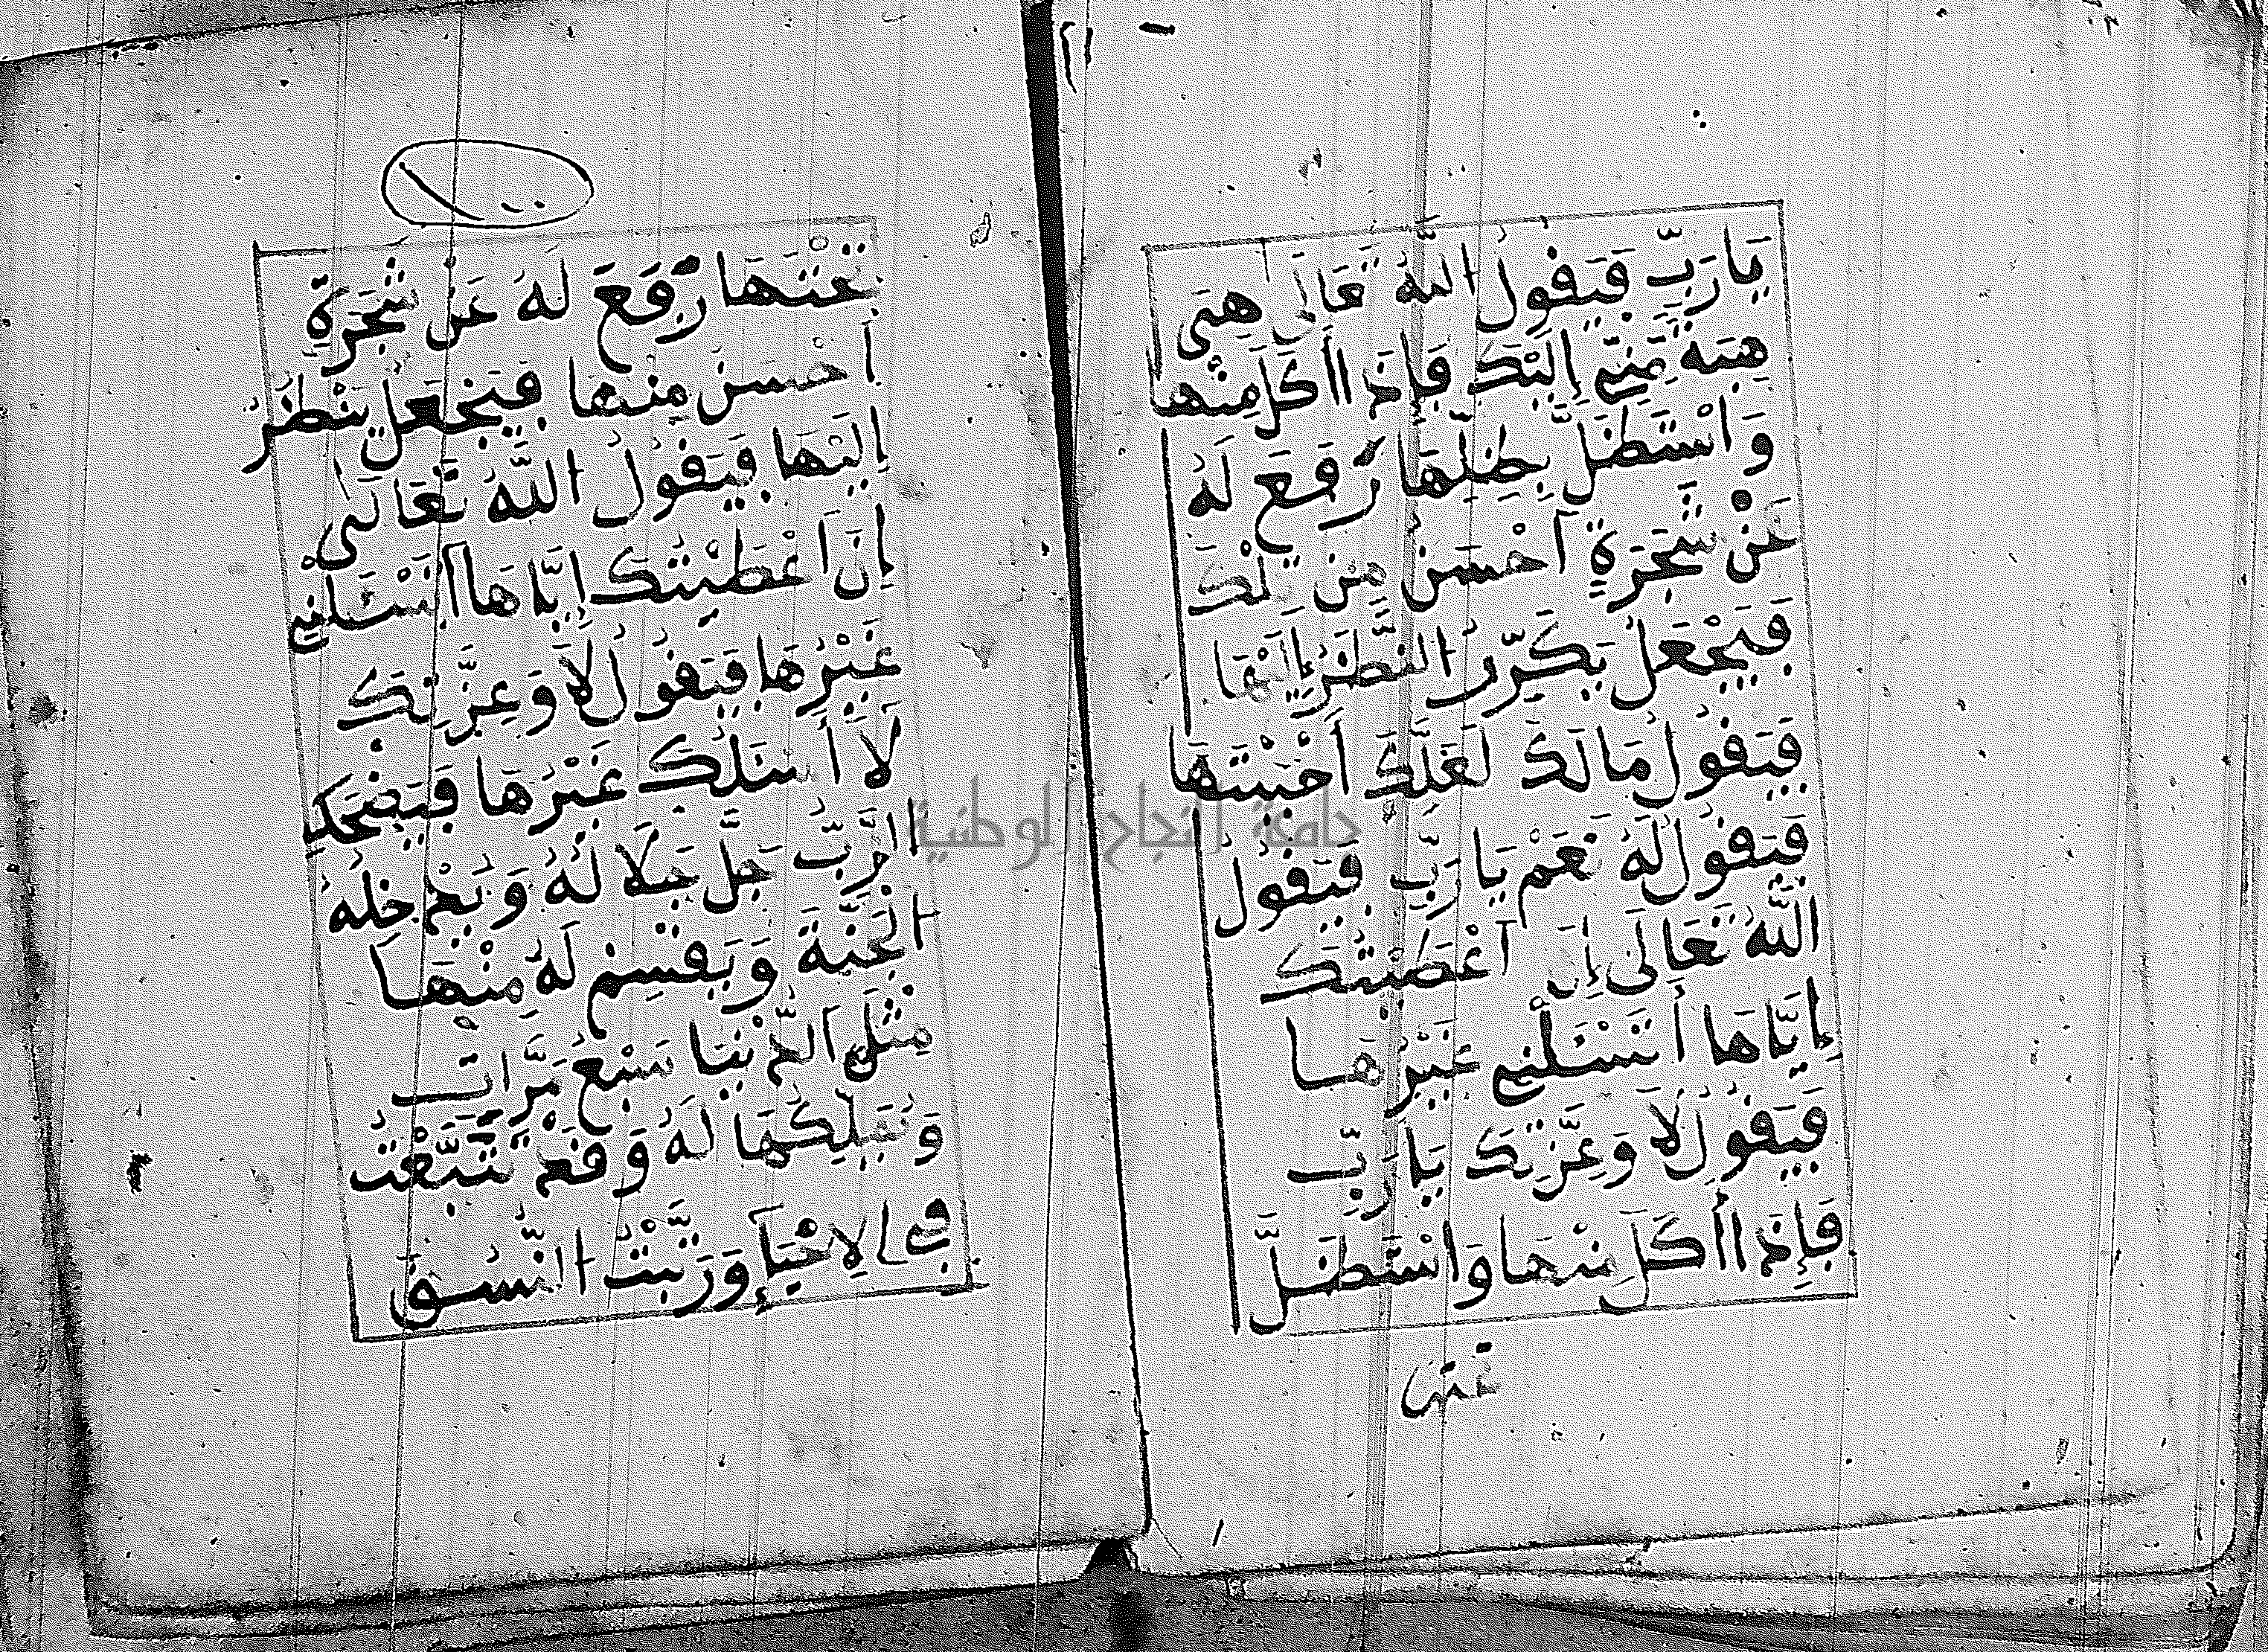 ٢١
يَارَبِّ فَيَقُولُ اللَّهُ تَعَالَى هِيَ
هِبَةٌ مِّنِّي إِلَيْكَ فَإِذَا أَكَلَ مِنْهَا
وَاسْتَظَلَّ بِظِلِّهَا رُفِعَ لَهُ
عَنْ شَجَرَةٍ أَحْسَنَ مِن تِلْكَ
فَيَجْعَلُ يُكَرِّرُ النَّظَرَ إِلَيْهَا
فَيَقُولُ مَا لَكَ لَعَلَّكَ أَحْبَبْتَهَا
فَيَقُولُ لَهُ نَعَمْ يَا رَبِّ فَيَقُولُ
اللَّهُ تَعَالَى إِنَ اَعْطَيْتُكَ
إِيَّاهَا أَتَسْئَلُنِي غَيْرَهَا
فَيَقُولُ لَا وَعِزَّتِكَ يَا رَبِّ
فَإِذَا أَكَلَ مِنْهَا وَاسْتَظَلَّ
تحتها
١٠٠
تَحْتَهَا رُفِعَ لَهُ عَن شَجَرَةٍ
أَحْسَنَ مِنْهَا فَيَجْعَلُ يَنْظُرُ
إِلَيْهَا فَيَقُولُ اللَّهُ تَعَالَى
إِنَ اَعْطَيْتُكَ إِيَّاهَا أَتَسْئَلُنِي
غَيْرَهَا فَيَقُولُ لَا وَعِزَّتِكَ
لَا أَسْئَلُكَ غَيْرَهَا فَيَضْحَكُ
الرَّبُّ جَلَّ جَلَالُهُ وَيُدْخِلُهُ
الْجَنَّةَ وَيَقْسِمُ لَهُ مِنْهَا
مِثْلَ الدُّنْيَا سَبْعَ مَرَّاتٍ
وَيُمَلِّكُهَا لَهُ وَقَدْ تَتَبَّعْتُ
فِي الإِحْيَاءِ وَرَتَّبْتُ النَّسَقَ
جامعة النجاح الوطنية